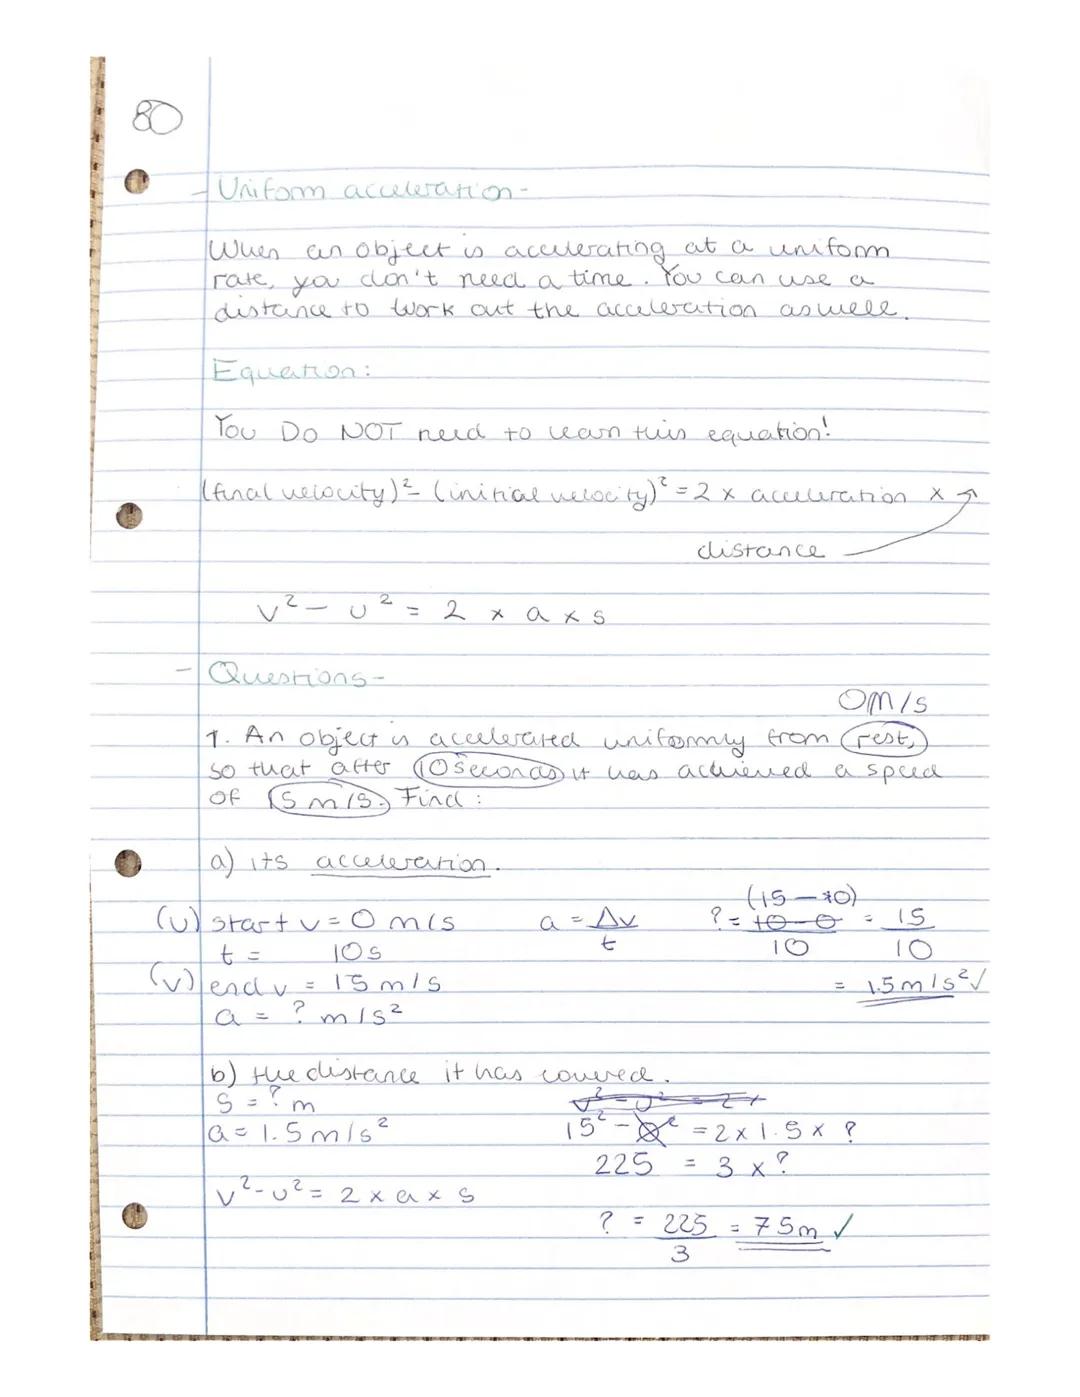 80
- Uniform acceleration -
When an object is accelerating at a uniform
rate, you don't need a time. You can use a
distance to work out the acceleration aswell.
Equation:
You DO NOT need to learn this equation!
(final velocity)² - (initial velocity)² = 2 x acceleration x
distance
v² - u² = 2 x a x s
- Questions -
0m/s
1. An object is accelerated uniformly from rest,
so that after 10 seconds it has achieved a speed
of 15 m/s. Find:
a) its acceleration.
(u) start v = 0 m/s
t = 10s
(v) end v = 15 m/s
a = ? m/s²
a = Δv
t
(15 - 0)
? = 10 - 0 = 15
10 10
= 1.5 m/s² ✓
b) the distance it has covered.
s = ? m
a = 1.5 m/s²
v² - u² = 2 x a x s
v² - u² = 2 x
15² - 0² = 2 x 1.5 x ?
225 = 3 x ?
? = 225 = 75m ✓
3